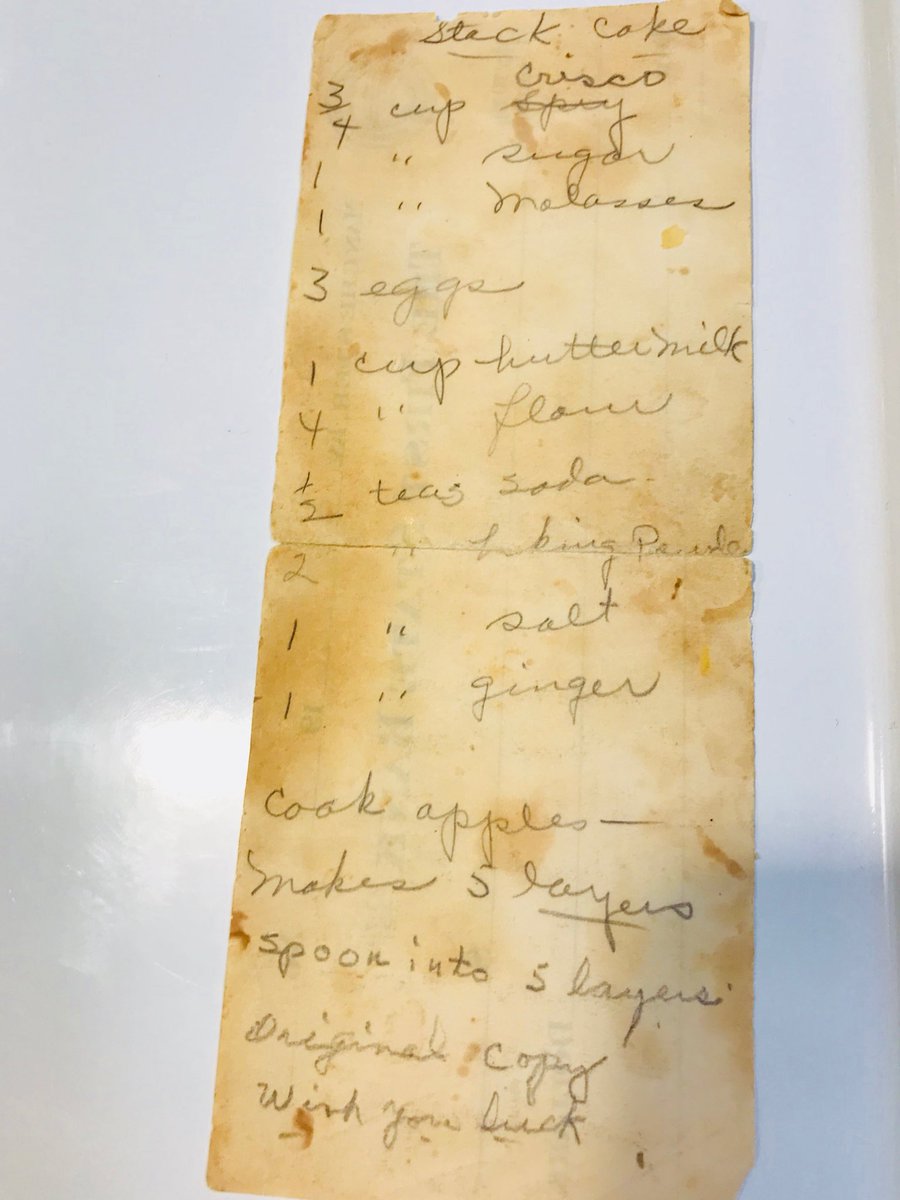 Stack Cake
Crisco
3/4 cup Spry
1 " sugar
1 " Molasses
3 eggs
1 cup buttermilk
4 " flour
1/2 teas soda
2 " Powde
1 " salt
1 " ginger
Cook apples —
Makes 5 layers
spoon into 5 layers.
Original Copy
Wish you luck